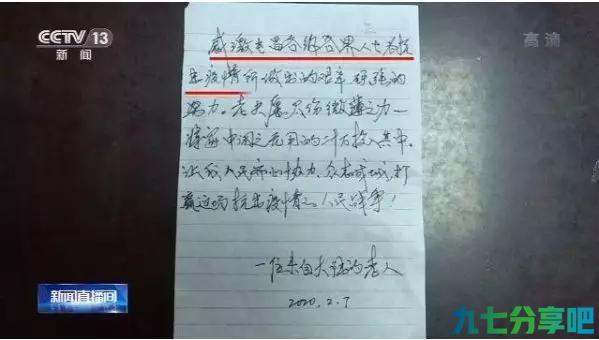 CCTV 13
新闻
高清
感激各级各界人士为抗
击疫情所做出的艰辛的
努力。老夫愿尽微薄之力—
将中之花用的二十万投入其中,
让我人民齐心协力,众志成城,打
赢这场抗击疫情之人民战争!
一位来自的老人
2020.2.7
新闻直播间
九七分享吧